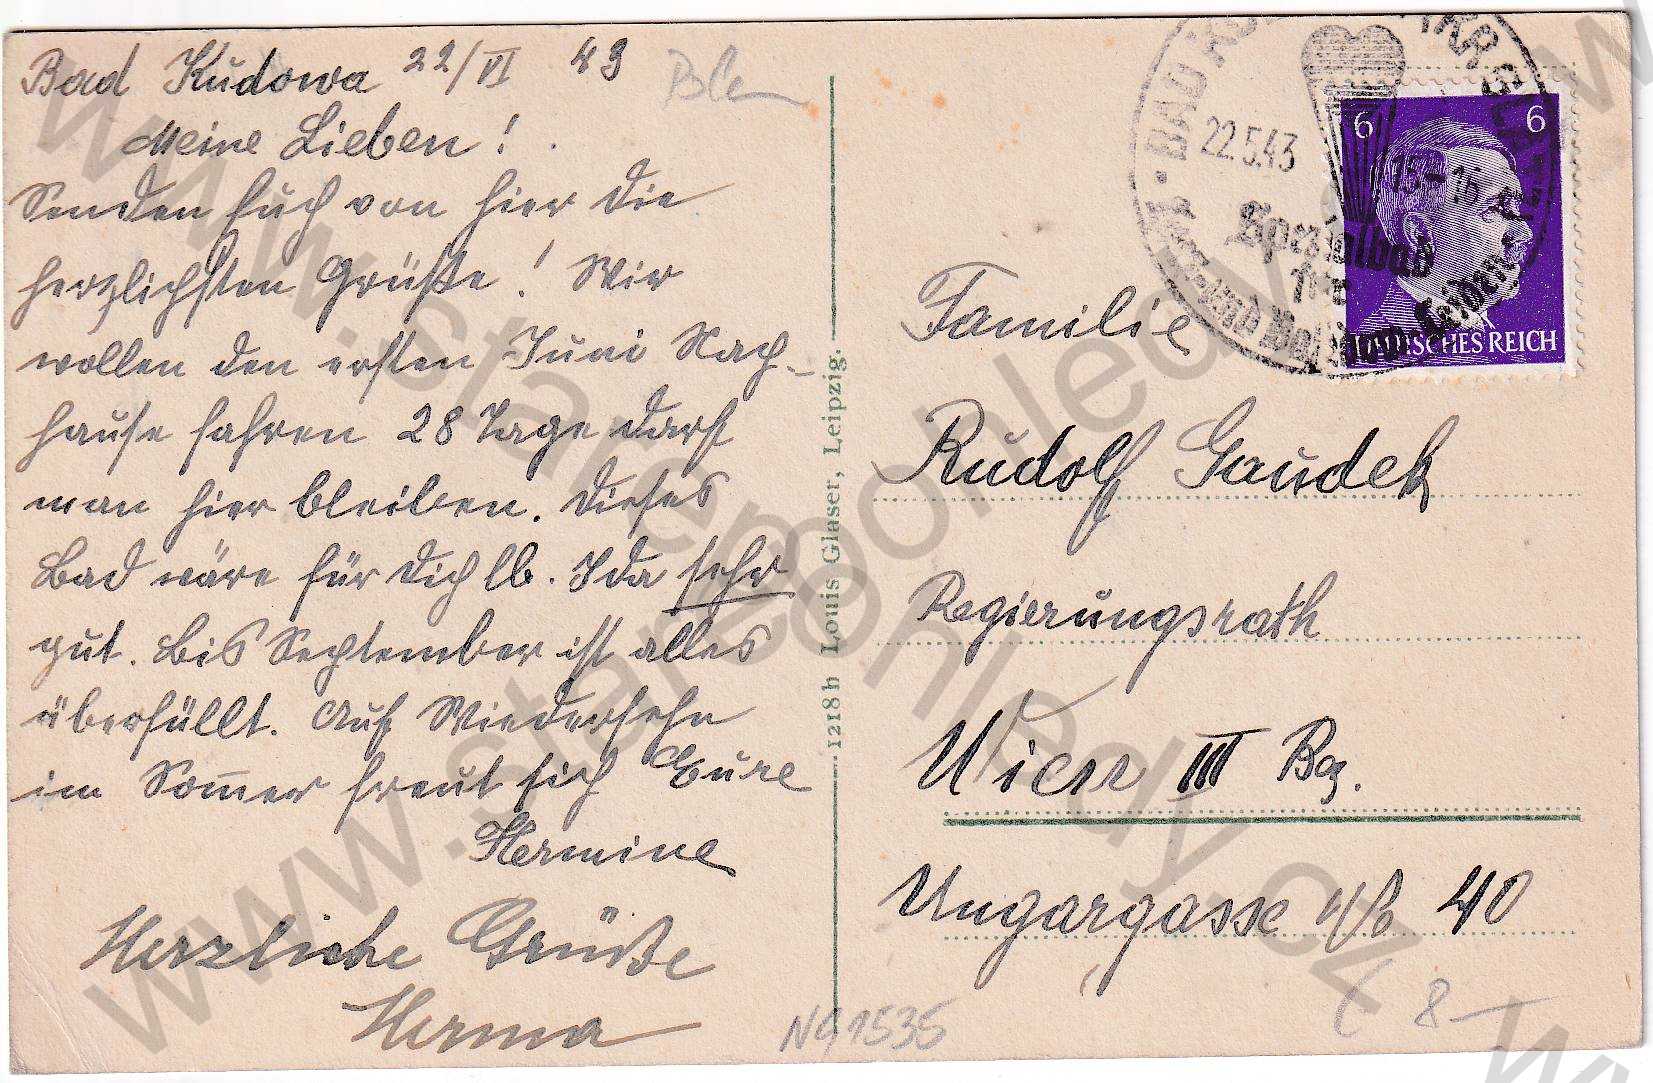 Bad Kudowa 22/VI 43
Meine Lieben!
Senden Euch von hier die
herzlichsten Grüße! Wir
wollen den ersten Juni Nach-
hause fahren 28 Tage darf
man hier bleiben. Dieses
Bad wäre für Dich lb. Ida sehr
gut. Bis September ist alles
überfüllt. Auf Wiedersehn
im Sommer freut sich Eure
Hermine
Herzliche Grüße
Herma
1218b Louis Glaser, Leipzig.
BAD
22.5.43
15-16
Spezialbad
6 6
REICH
Familie
Rudolf Gaudek
Regierungsrath
Wien III Bez.
Ungargasse 40
N91535
8-
www.starepohledy.cz